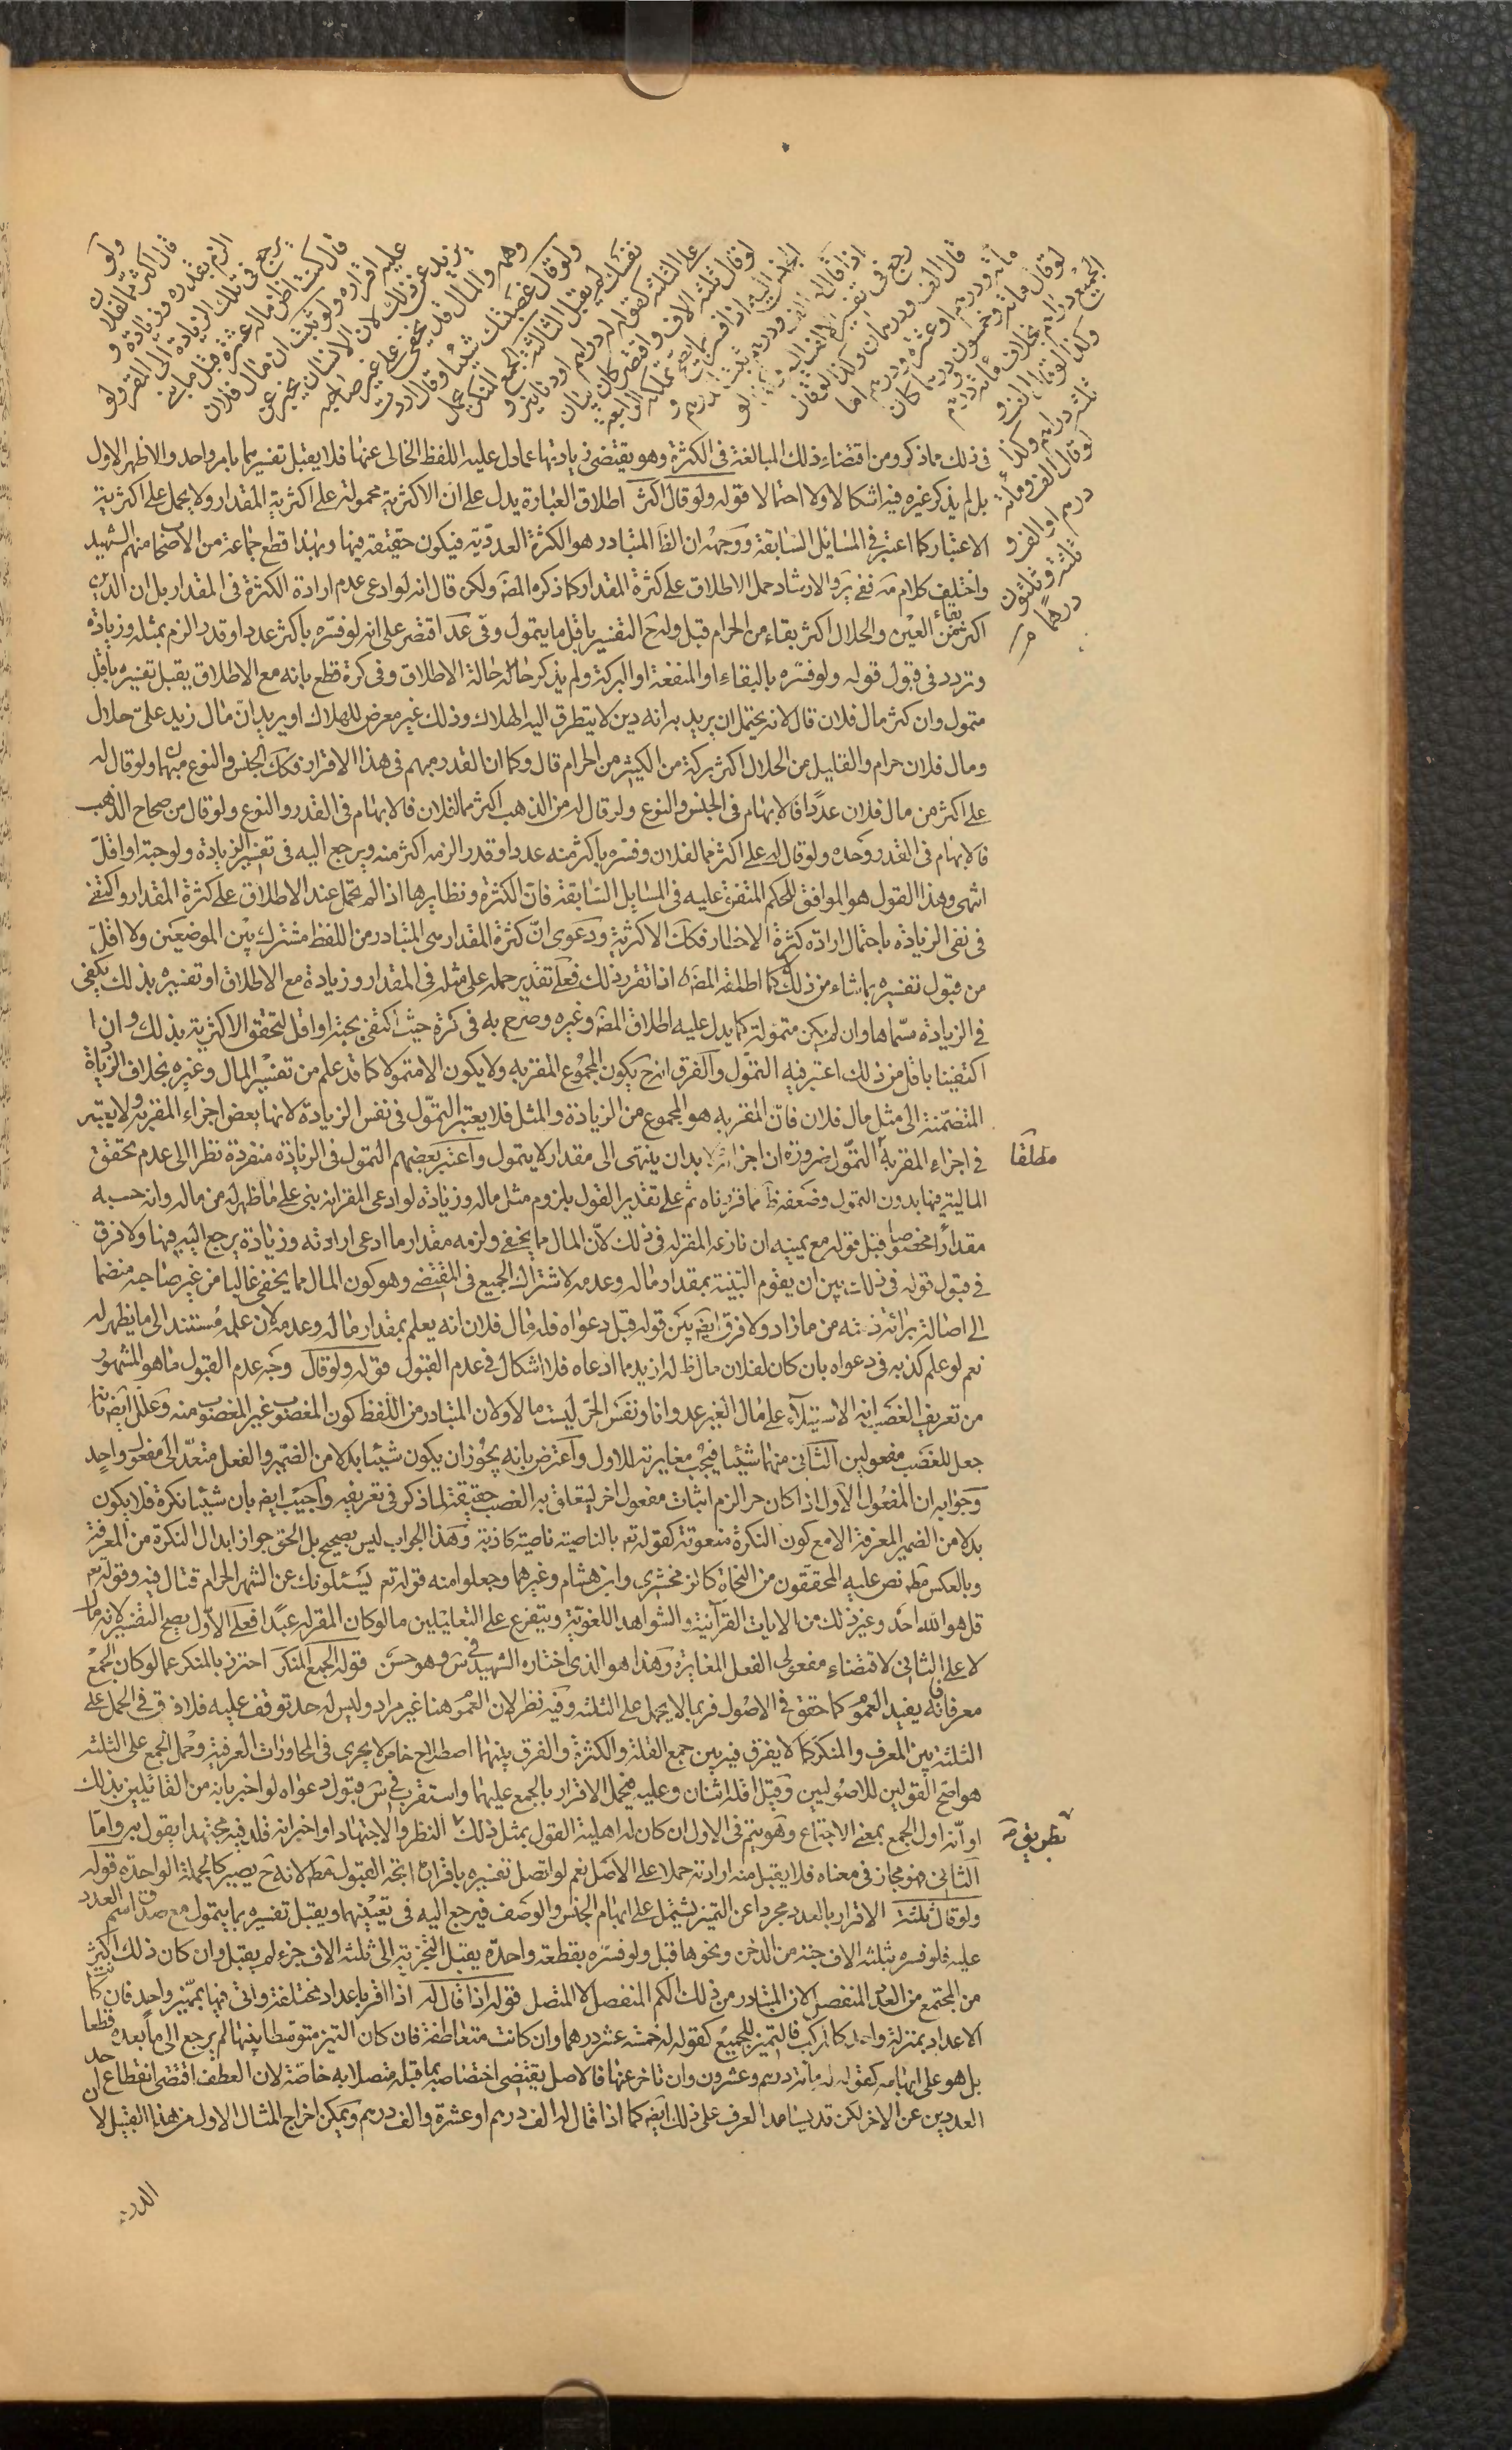 ولو
قال اكثر مما لفلان
الزم بقدره وزيادة و
يرجع فى تلك الزيادة الى المقر ولو
قال كنت اظن ماله عشرة قبل ما بنى
عليه اقراره ولو ثبت ان مال فلان
يزيد عن ذلك لان الانسان يخبر عن
وهمه والمال قد يخفى على غير صاحبه
ولو قال غصبتك شيئا وقال اردت
نفسك لم يقبل الثالثة الجمع المنكر يحمل
على الثلثة كقوله له دراهم او دنانير و
لو قال ثلثة الاف واقتصر كان بيان
الجنس اليه اذا فسر بما يصح تملكه الرابعة
اذا قال له الف ودرهم ثبت الدرهم و
رجع فى تفسير الالف اليه
قال الف ودرهمان وكذا لو قال
مائة ودرهم او عشرة ودرهم اما
لو قال مائة وخمسون درهما كان
الجميع دراهم بخلاف مائة ودرهم
وكذا لو قال الف و
ثلثة دراهم وكذا
لو قال الف ومائة
درهم او الف و
ثلثة وثلثون
درهما
فى ذلك مما ذكر ومن اقتضاء ذلك المبالغة فى الكثرة وهو يقتضى زيادتها عما دل عليه اللفظ الخالى عنها فلا يقبل تفسيرهما بامر واحد والاظهر الاول
بل لم يذكر غيره فيه اشكالا ولا احتمالا قوله ولو قال اكثر اطلاق العبارة يدل على ان الاكثرية محمولة على اكثرية المقدار ولا يحمل على اكثرية
الاعتبار كما اعتبر فى المسائل السابقة ووجهه ان الظ المتبادر هو الكثرة العددية فيكون حقيقة فيها وبهذا قطع جماعة من الاصحاب منهم الشهيد
واختلف كلام مه ففى ير والارشاد حمل الاطلاق على كثرة المقدار كما ذكره المصه ولكن قال انه لو ادعى عدم ارادة الكثرة فى المقدار بل ان الدين
اكثر بقاء من العين والحلال اكثر بقاء من الحرام قبل وله ح التفسير باقل ما يتمول وفى عد اقتصر على انه لو فسره باكثر عددا او قدرا الزم بمثله وزيادة
وتردد فى قبول قوله ولو فسره بالبقاء او المنفعة او البركة ولم يذكر حاله حالة الاطلاق وفى كرة قطع بانه مع الاطلاق يقبل تفسيره باقل
متمول وان كثر مال فلان قال لانه يحتمل ان يريد به انه دين لا يتطرق اليه الهلاك وذلك غير معرض للهلاك او يريد ان مال زيد على حلال
ومال فلان حرام والقليل من الحلال اكثر بركة من الكثير من الحرام قال وكما ان القدر مبهم فى هذا الاقرار فكك الجنس والنوع مبهما ولو قال له
على اكثر من مال فلان عددا فالابهام فى الجنس والنوع ولو قال له من الذهب اكثر مما لفلان فالابهام فى القدر والنوع ولو قال من صحاح الذهب
فالابهام فى القدر وحده ولو قال له على اكثر مما لفلان وفسره باكثر منه عددا او قدرا لزمه اكثر منه ويرجع اليه فى تفسير الزيادة ولو حبة او اقل
انتهى وهذا القول هو الموافق للحكم المتفق عليه فى المسايل السابقة فان الكثرة ونظايرها اذا لم تحمل عند الاطلاق على كثرة المقدار واكتفى
فى نفى الزيادة باحتمال ارادة كثرة الاخطار فكك الاكثرية ودعوى ان كثرة المقدار هى المتبادر من اللفظ مشترك بين الموضعين ولا اقل
من قبول تفسيره بما شاء من ذلك لا كما اطلقه المصه اذا تقرر ذلك فعلى تقدير حمله على مثله فى المقدار وزيادة مع الاطلاق او تفسيره بذلك يكفى
فى الزيادة مسماها وان لم يكن متمولة كما يدل عليه اطلاق المصه وغيره وصرح به فى كرة حيث اكتفى بحبة او اقل لتحقق الاكثرية بذلك وان
اكتفينا باقل من ذلك اعتبر فيه التمول والفرق انه ح يكون المجموع المقر به ولا يكون الا متمولا كما قد علم من تفسير المال وغيره بخلاف الزيادة
المتضمنة الى مثل مال فلان فان المقر به هو المجموع من الزيادة والمثل فلا يعتبر التمول فى نفس الزيادة لانها بعض اجزاء المقر به ولا يعتبر
فى اجزاء المقر به التمول ضرورة ان اجزائه لا بد ان ينتهى الى مقدار لا يتمول واعتبر بعضهم التمول فى الزيادة منفردة نظرا الى عدم تحقق
مطلقا
المالية فيها بدون التمول وضعفه ظ مما قررناه ثم على تقدير القول بلزوم مثل ماله وزيادة لو ادعى المقر انه بنى على ما ظهر له من ماله وانه حسبه
مقدارا مخصوصا قبل قوله مع يمينه ان نازعه المقر له فى ذلك لان المال مما يخفى ولزمه مقدار ما ادعى ارادته وزيادة يرجع اليه فيها ولا فرق
فى قبول قوله فى ذلك بين ان يقوم البينة بمقدار ماله وعدمه لاشتراك الجميع فى المقتضى وهو كون المال مما يخفى غالبا من غير صاحبه منضما
الى اصالة برائة ذمته من ما زاد ولا فرق ايضه بين قوله قبل دعواه قلة مال فلان انه يعلم بمقدار ماله وعدمه لان علمه مستند الى ما يظهر له
نعم لو علم كذبه فى دعواه بان كان لفلان مال ظ له ازيد مما ادعاه فلا اشكال فى عدم القبول قوله ولو قال وجه عدم القبول ما هو المشهور
من تعريف الغصب انه الاستيلاء على مال الغير عدوانا ونفس الحر ليست مالا ولان المتبادر من اللفظ كون المغصوب غير المغصوب منه وعلل ايضه بانه
جعل للغصب مفعولين الثانى منهما شيئا فيجب مغايرته للاول واعترض بانه يجوز ان يكون شيئا بدلا من الضمير والفعل متعد الى مفعول واحد
وجوابه ان المفعول الاول اذا كان حرا لزم اثبات مفعول اخر ليتعلق به الغصب حقيقة لما ذكر فى تعريفه واجيب ايضه بان شيئا نكرة فلا يكون
بدلا من الضمير المعرفة الا مع كون النكرة منعوتة كقوله تعه بالناصية ناصية كاذبة وهذا الجواب ليس بصحيح بل الحق جواز ابدال النكرة من المعرفة
وبالعكس مطه نص عليه المحققون من النحاة كالزمخشرى وابن هشام وغيرهما وجعلوا منه قوله تعه يسئلونك عن الشهر الحرام قتال فيه وقوله تعه
قل هو الله احد وغير ذلك من الايات القرآنية والشواهد اللغوية ويتفرع على التعليلين ما لو كان المقر له عبدا فعلى الاول يصح التفسير لانه مال
لا على الثانى لاقتضاء مفعولى الفعل المغايرة وهذا هو الذى اختاره الشهيد فى س وهو حسن قوله الجمع المنكر احترز بالمنكر عما لو كان الجمع
معرفا فانه يفيد العموم كما حقق فى الاصول فربما لا يحمل على الثلثة وفيه نظر لان العموم هنا غير مراد وليس له حد توقف عليه فلا فرق فى الحمل على
الثلثة بين المعرف والمنكر كما لا يفرق فيه بين جمع القلة والكثرة والفرق بينهما اصطلاح خاص لا يجرى فى المحاورات العرفية وحمل الجمع على الثلثة
هو اصح القولين للاصوليين وقيل اقله اثنان وعليه فيحمل الاقرار بالجمع عليهما واستقرب فى س قبول دعواه لو اخبر بانه من القائلين بذلك
او انه اول الجمع بمعنى الاجتماع وهو يتم فى الاول ان كان له اهلية القول بمثل ذلك النظر والاجتهاد او اخبر انه قلد فيه مجتهدا يقول به واما
بطريق مه
الثانى فهو مجاز فى معناه فلا يقبل منه ارادته حملا على الاصل نعم لو اتصل تفسيره باقراره اتجه القبول مطه لانه ح يصير كالجملة الواحدة قوله
ولو قال ثلثة الاقرار بالعدد مجردا عن التميز يشتمل على ابهام الجنس والوصف فيرجع اليه فى تعيينهما ويقبل تفسيره بما يتمول مع صدق اسم العدد
عليه فلو فسره بثلثة الاف حبة من الدخن ونحوها قبل ولو فسره بقطعة واحدة يقبل التجزية الى ثلثة الاف جزء لم يقبل وان كان ذلك اكثر
من المجتمع من العدد المنفصل لان المتبادر من ذلك الكم المنفصل لا المتصل قوله اذا قال له اذا اقر باعداد مختلفة واتى فيها بمميز واحد فان كا
الاعداد بمنزلة واحد كالمركب فالتميز للجميع كقوله له خمسة عشر درهما وان كانت متعاطفة فان كان التميز متوسطا بينهما لم يرجع الى ما بعده قطعا
بل هو على ابهامه كقوله له مائة درهم وعشرون وان تاخر عنها فالاصل يقتضى اختصاصه بما قبله متصلا به خاصة لان العطف اقتضى انقطاع احد
العددين عن الاخر لكن قد يساعد العرف على ذلك ايضه كما اذا قال له الف درهم او عشرة والف درهم ويمكن اخراج المثال الاول من هذا القبيل لان